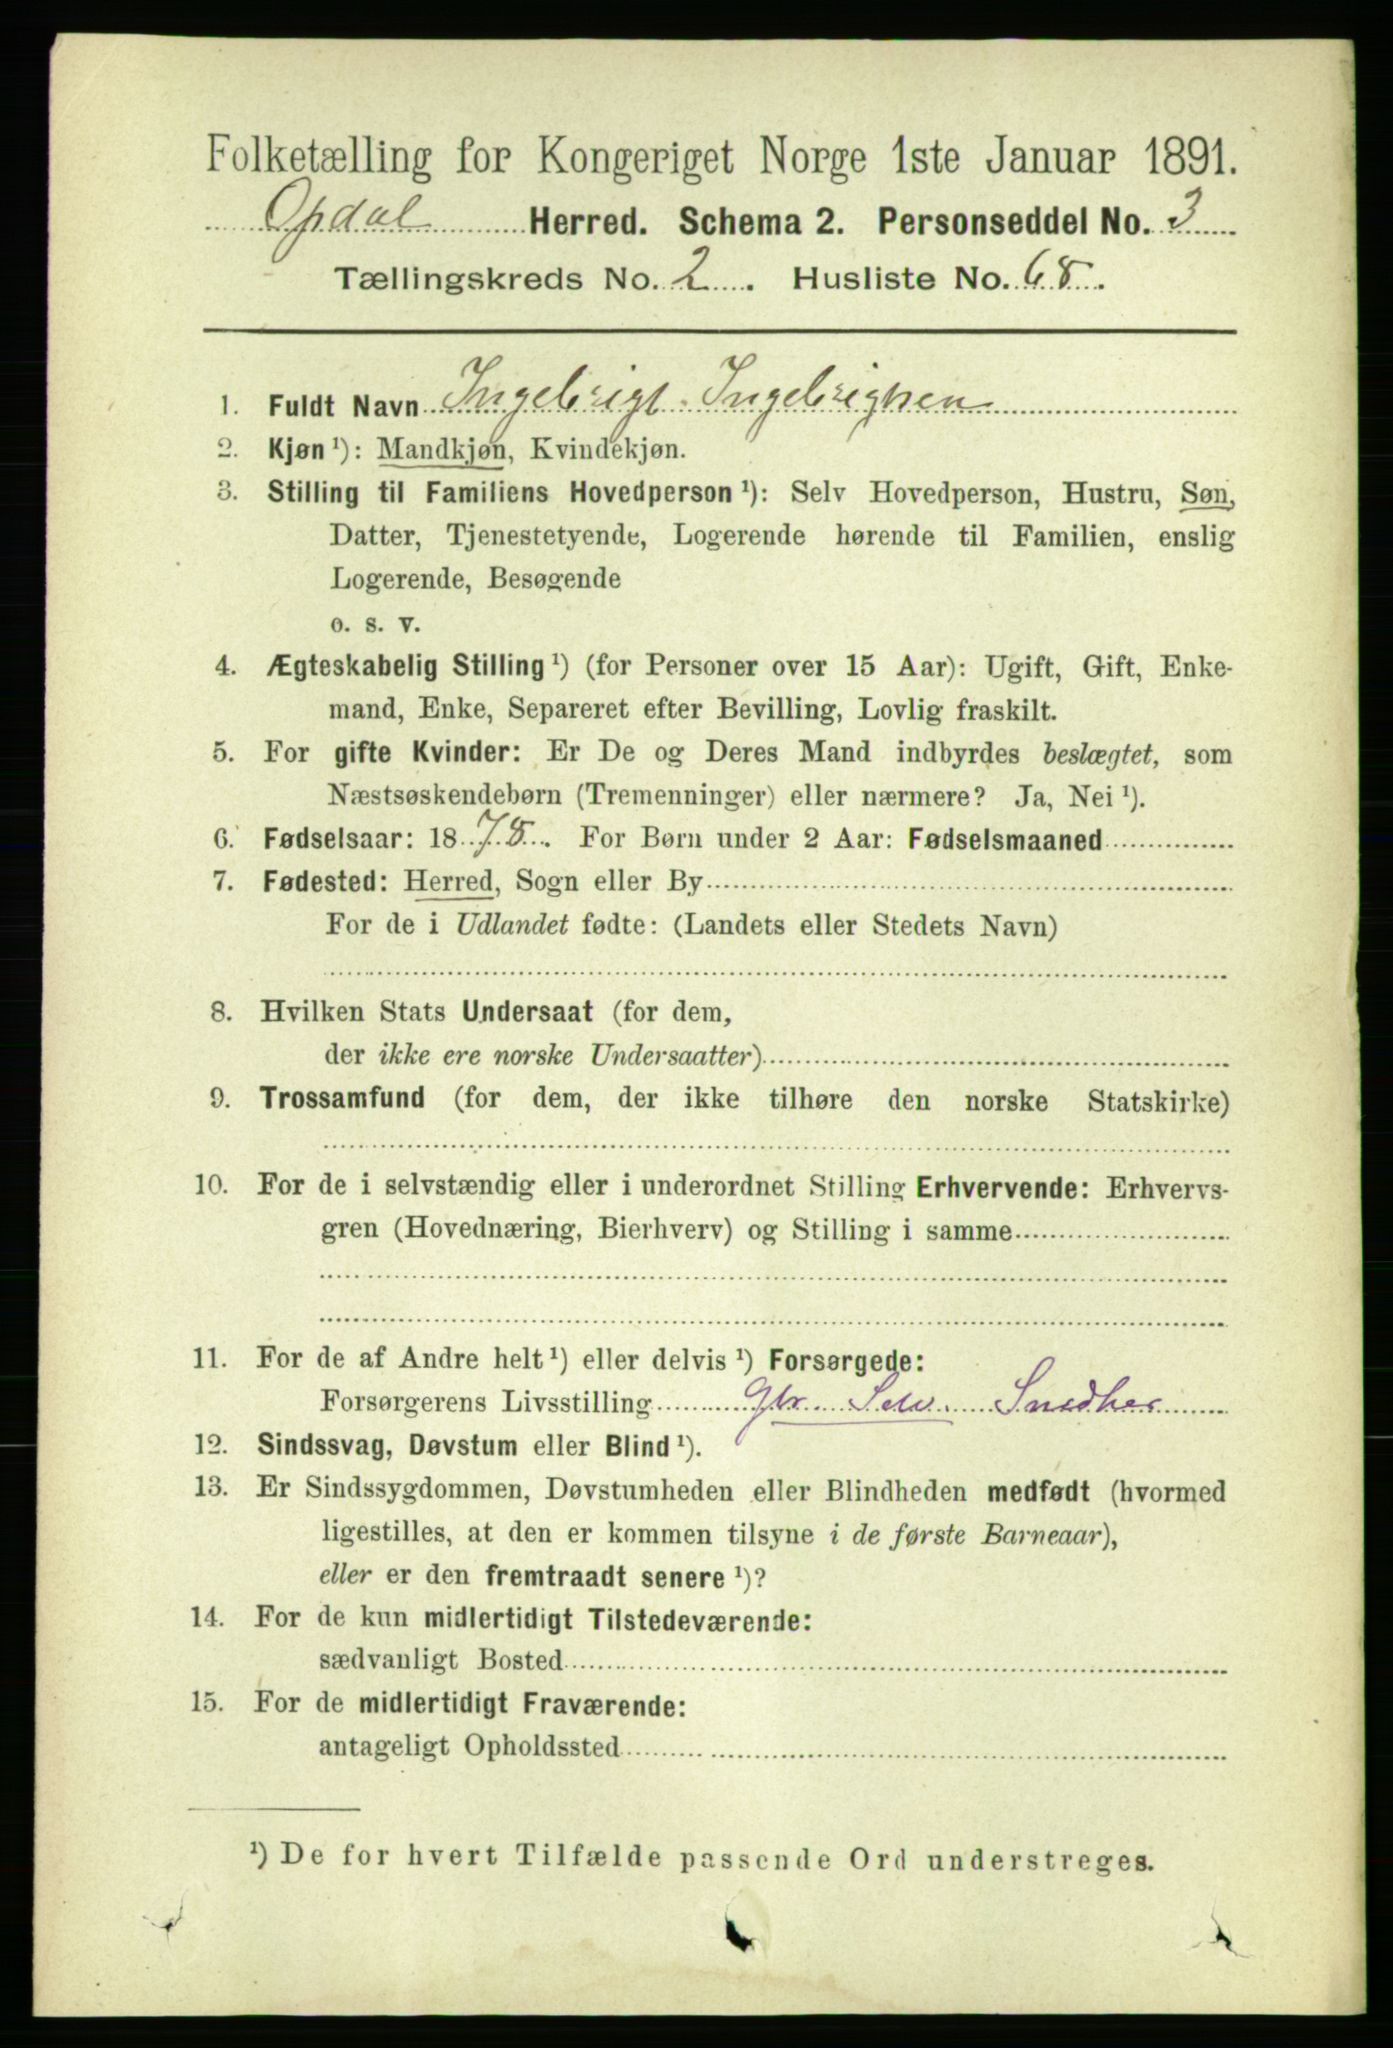 Folketælling for Kongeriget Norge 1ste Januar 1891.
Opdal Herred. Schema 2. Personseddel No. 3
Tællingskreds No. 2. Husliste No. 68.
1. Fuldt Navn Ingebrigt Ingebrigtsen
2. Kjøn ¹): Mandkjøn, Kvindekjøn.
3. Stilling til Familiens Hovedperson ¹): Selv Hovedperson, Hustru, Søn,
Datter, Tjenestetyende, Logerende hørende til Familien, enslig
Logerende, Besøgende
o. s. v.
4. Ægteskabelig Stilling ¹) (for Personer over 15 Aar): Ugift, Gift, Enke-
mand, Enke, Separeret efter Bevilling, Lovlig fraskilt.
5. For gifte Kvinder: Er De og Deres Mand indbyrdes beslægtet, som
Næstsøskendebørn (Tremenninger) eller nærmere? Ja, Nei ¹).
6. Fødselsaar: 1878. For Børn under 2 Aar: Fødselsmaaned
7. Fødested: Herred, Sogn eller By
For de i Udlandet fødte: (Landets eller Stedets Navn)
8. Hvilken Stats Undersaat (for dem,
der ikke ere norske Undersaatter)
9. Trossamfund (for dem, der ikke tilhøre den norske Statskirke)
10. For de i selvstændig eller i underordnet Stilling Erhvervende: Erhvervs-
gren (Hovednæring, Bierhverv) og Stilling i samme
11. For de af Andre helt ¹) eller delvis ¹) Forsørgede:
Forsørgerens Livsstilling Gbr. Selv. Snedker
12. Sindssvag, Døvstum eller Blind ¹).
13. Er Sindssygdommen, Døvstumheden eller Blindheden medfødt (hvormed
ligestilles, at den er kommen tilsyne i de første Barneaar),
eller er den fremtraadt senere ¹)?
14. For de kun midlertidigt Tilstedeværende:
sædvanligt Bosted
15. For de midlertidigt Fraværende:
antageligt Opholdssted
¹) De for hvert Tilfælde passende Ord understreges.